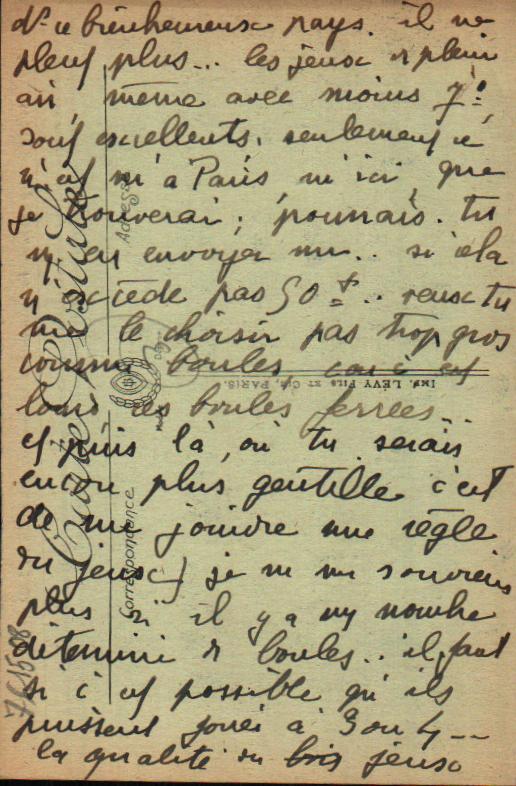 ds ce bienheureux pays. il ne
pleut plus... les jeux de plein
air, même avec moins 7°
sont excellents, seulement ce
n'est ni à Paris, ni ici, que
je trouverai, pourrais. tu
m'en envoyer un.. si cela
n'excède pas 50 f.. veux tu
me le choisir pas trop gros
comme boules, car c'est
lourd les boules ferrées...
et puis là, où tu serais
encor plus gentille c'est
de me joindre une règle
du jeux je ne me souviens
plus si il y a un nombre
déterminé de boules.. il faut
si c'est possible qu'ils
puissent jouer à 3 ou 4 --
la qualité du bois jeux
Carte Postale
Adresse
Correspondance
IMP. LÉVY FILS ET CIE, PARIS.